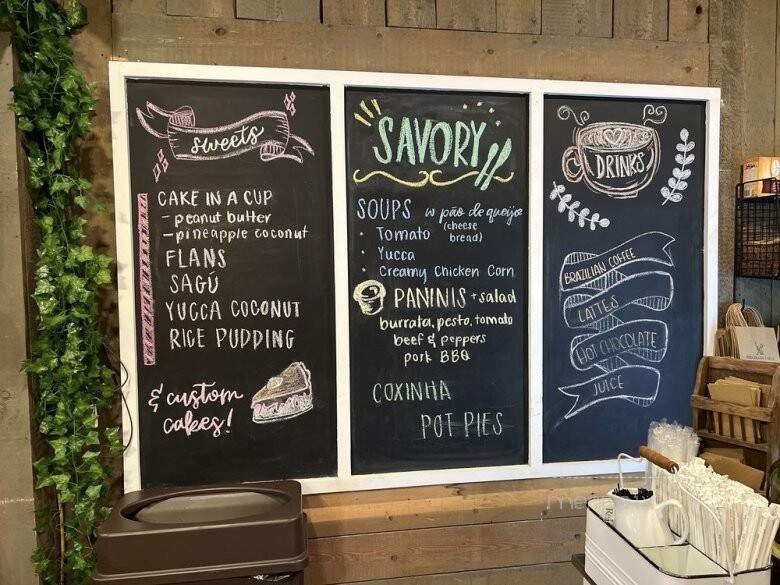 sweets
CAKE IN A CUP
- peanut butter
- pineapple coconut
FLANS
SAGÚ
YUCCA COCONUT
RICE PUDDING
& custom
cakes!
SAVORY
SOUPS w pão de queijo
(cheese
bread)
• Tomato
• Yucca
• Creamy Chicken Corn
PANINIS + salad
burrata, pesto, tomato
beef & peppers
pork BBQ
COXINHA
POT PIES
DRINKS
BRAZILIAN COFFEE
LATTES
HOT CHOCOLATE
JUICE